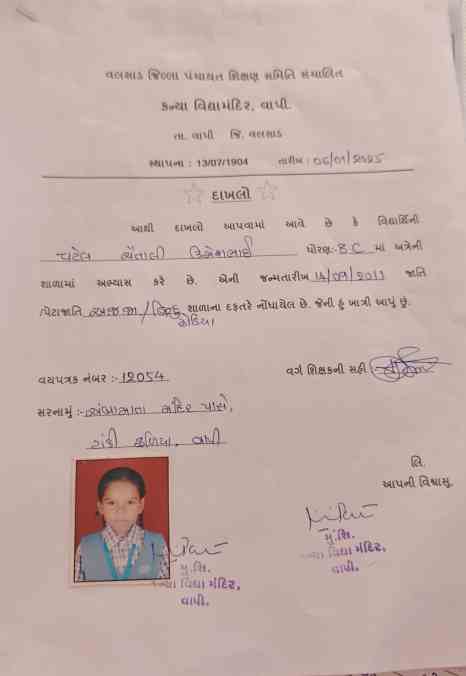 વલસાડ જિલ્લા પંચાયત શિક્ષણ સમિતિ સંચાલિત
કન્યા વિદ્યામંદિર, વાપી.
તા. વાપી જિ. વલસાડ
સ્થાપના : 13/07/1904 તારીખ : 06/01/2025
દાખલો
આથી દાખલો આપવામાં આવે છે કે વિદ્યાર્થિની
પટેલ ચૈતાલી ધોરણ:- 8.C માં અત્રેની
શાળામાં અભ્યાસ કરે છે. એની જન્મતારીખ 14/09/2011 જાતિ
/પેટાજાતિ અ.જ.જા/હિન્દુ શાળાના દફતરે નોંધાયેલ છે. જેની હું ખાત્રી આપું છું.
ધોડિયા
વયપત્રક નંબર :- 12054 વર્ગ શિક્ષકની સહી :-
સરનામું :- અંબામાતા મંદિર પાસે,
ફળિયા, વાપી
લિ.
આપની વિશ્વાસુ.
મુ.શિ.
કન્યા વિદ્યા મંદિર,
વાપી.
મુ.શિ.
કન્યા વિદ્યા મંદિર,
વાપી.